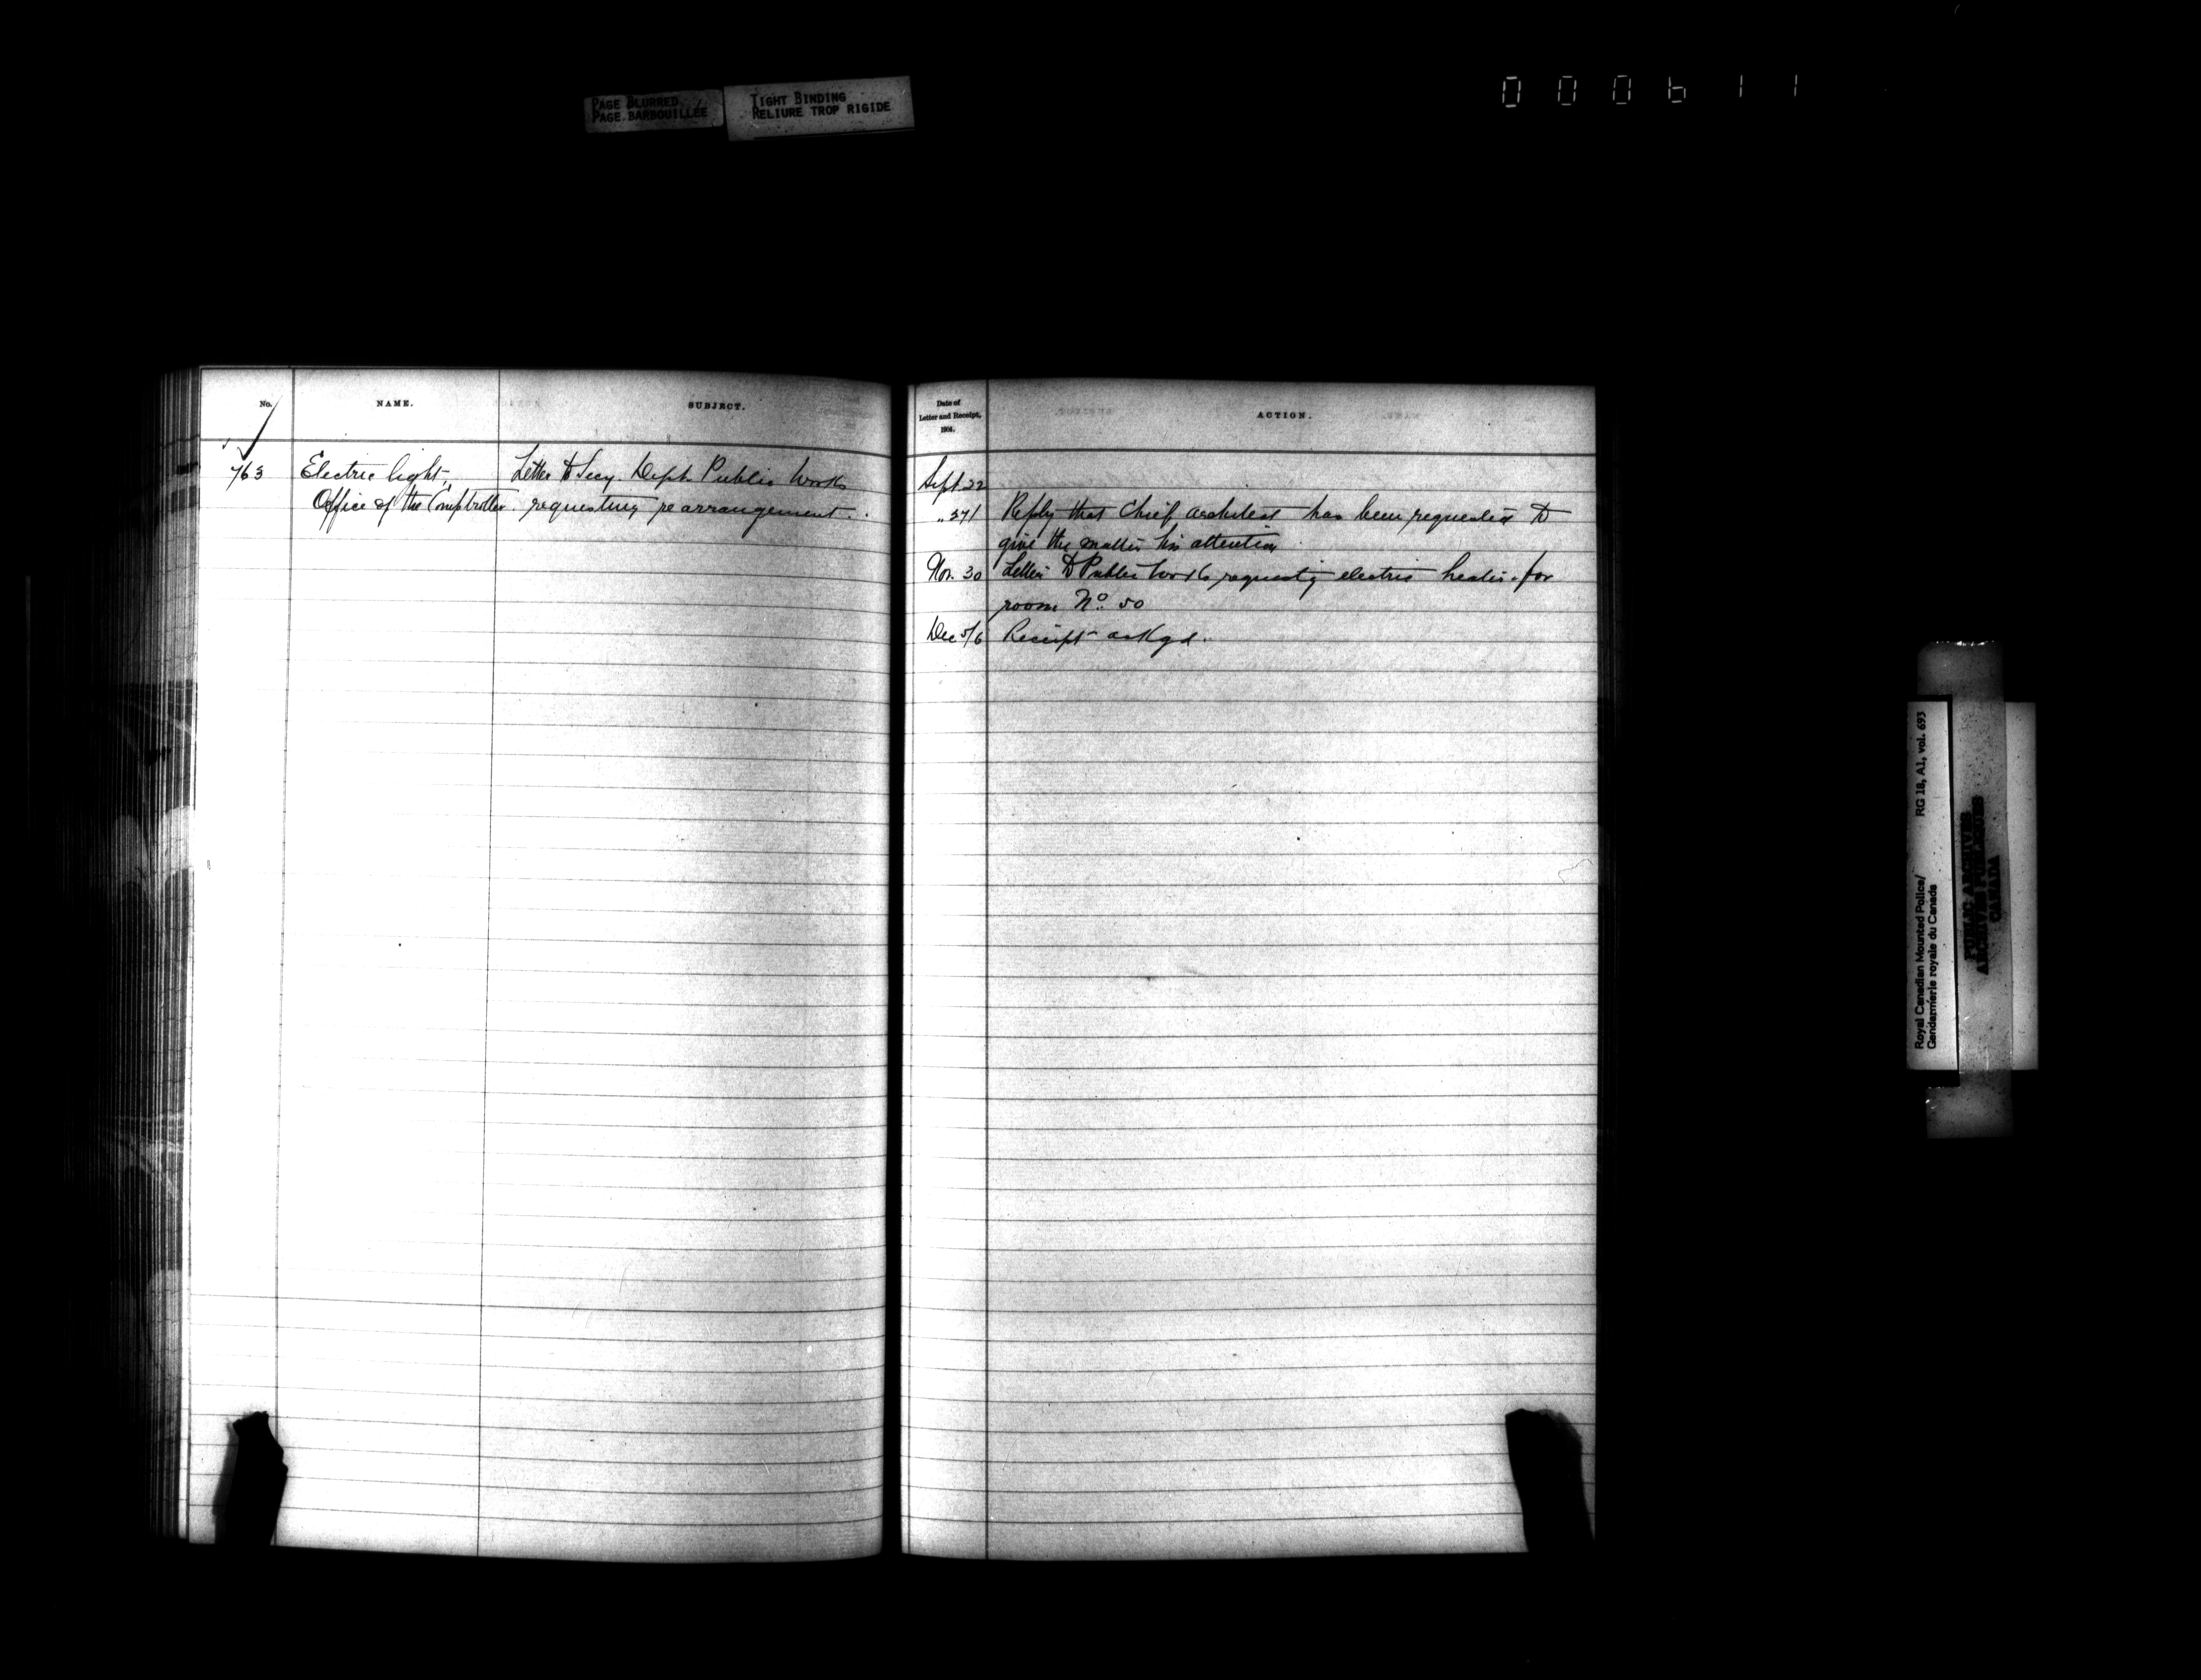 PAGE BLURRED
PAGE BARBOUILLÉE
TIGHT BINDING
RELIURE TROP RIGIDE
000611
No.
NAME.
SUBJECT.
763
Electric light,
Letter to Secy. Dept. Public Works
Office of the Comptroller.
requesting rearrangement.
Date of
Letter and Receipt,
1904.
ACTION.
Sept 22
Reply that Chief Architect has been requested to
give the matter his attention
Nov. 30 Letter to Public Works requestg electric heater for
room No. 50
Dec 5/6 Receipt ackgd.
Royal Canadian Mounted Police/ RG 18, A1, vol. 693
Gendarmerie royale du Canada
PUBLIC ARCHIVES
ARCHIVES PUBLIQUES
CANADA